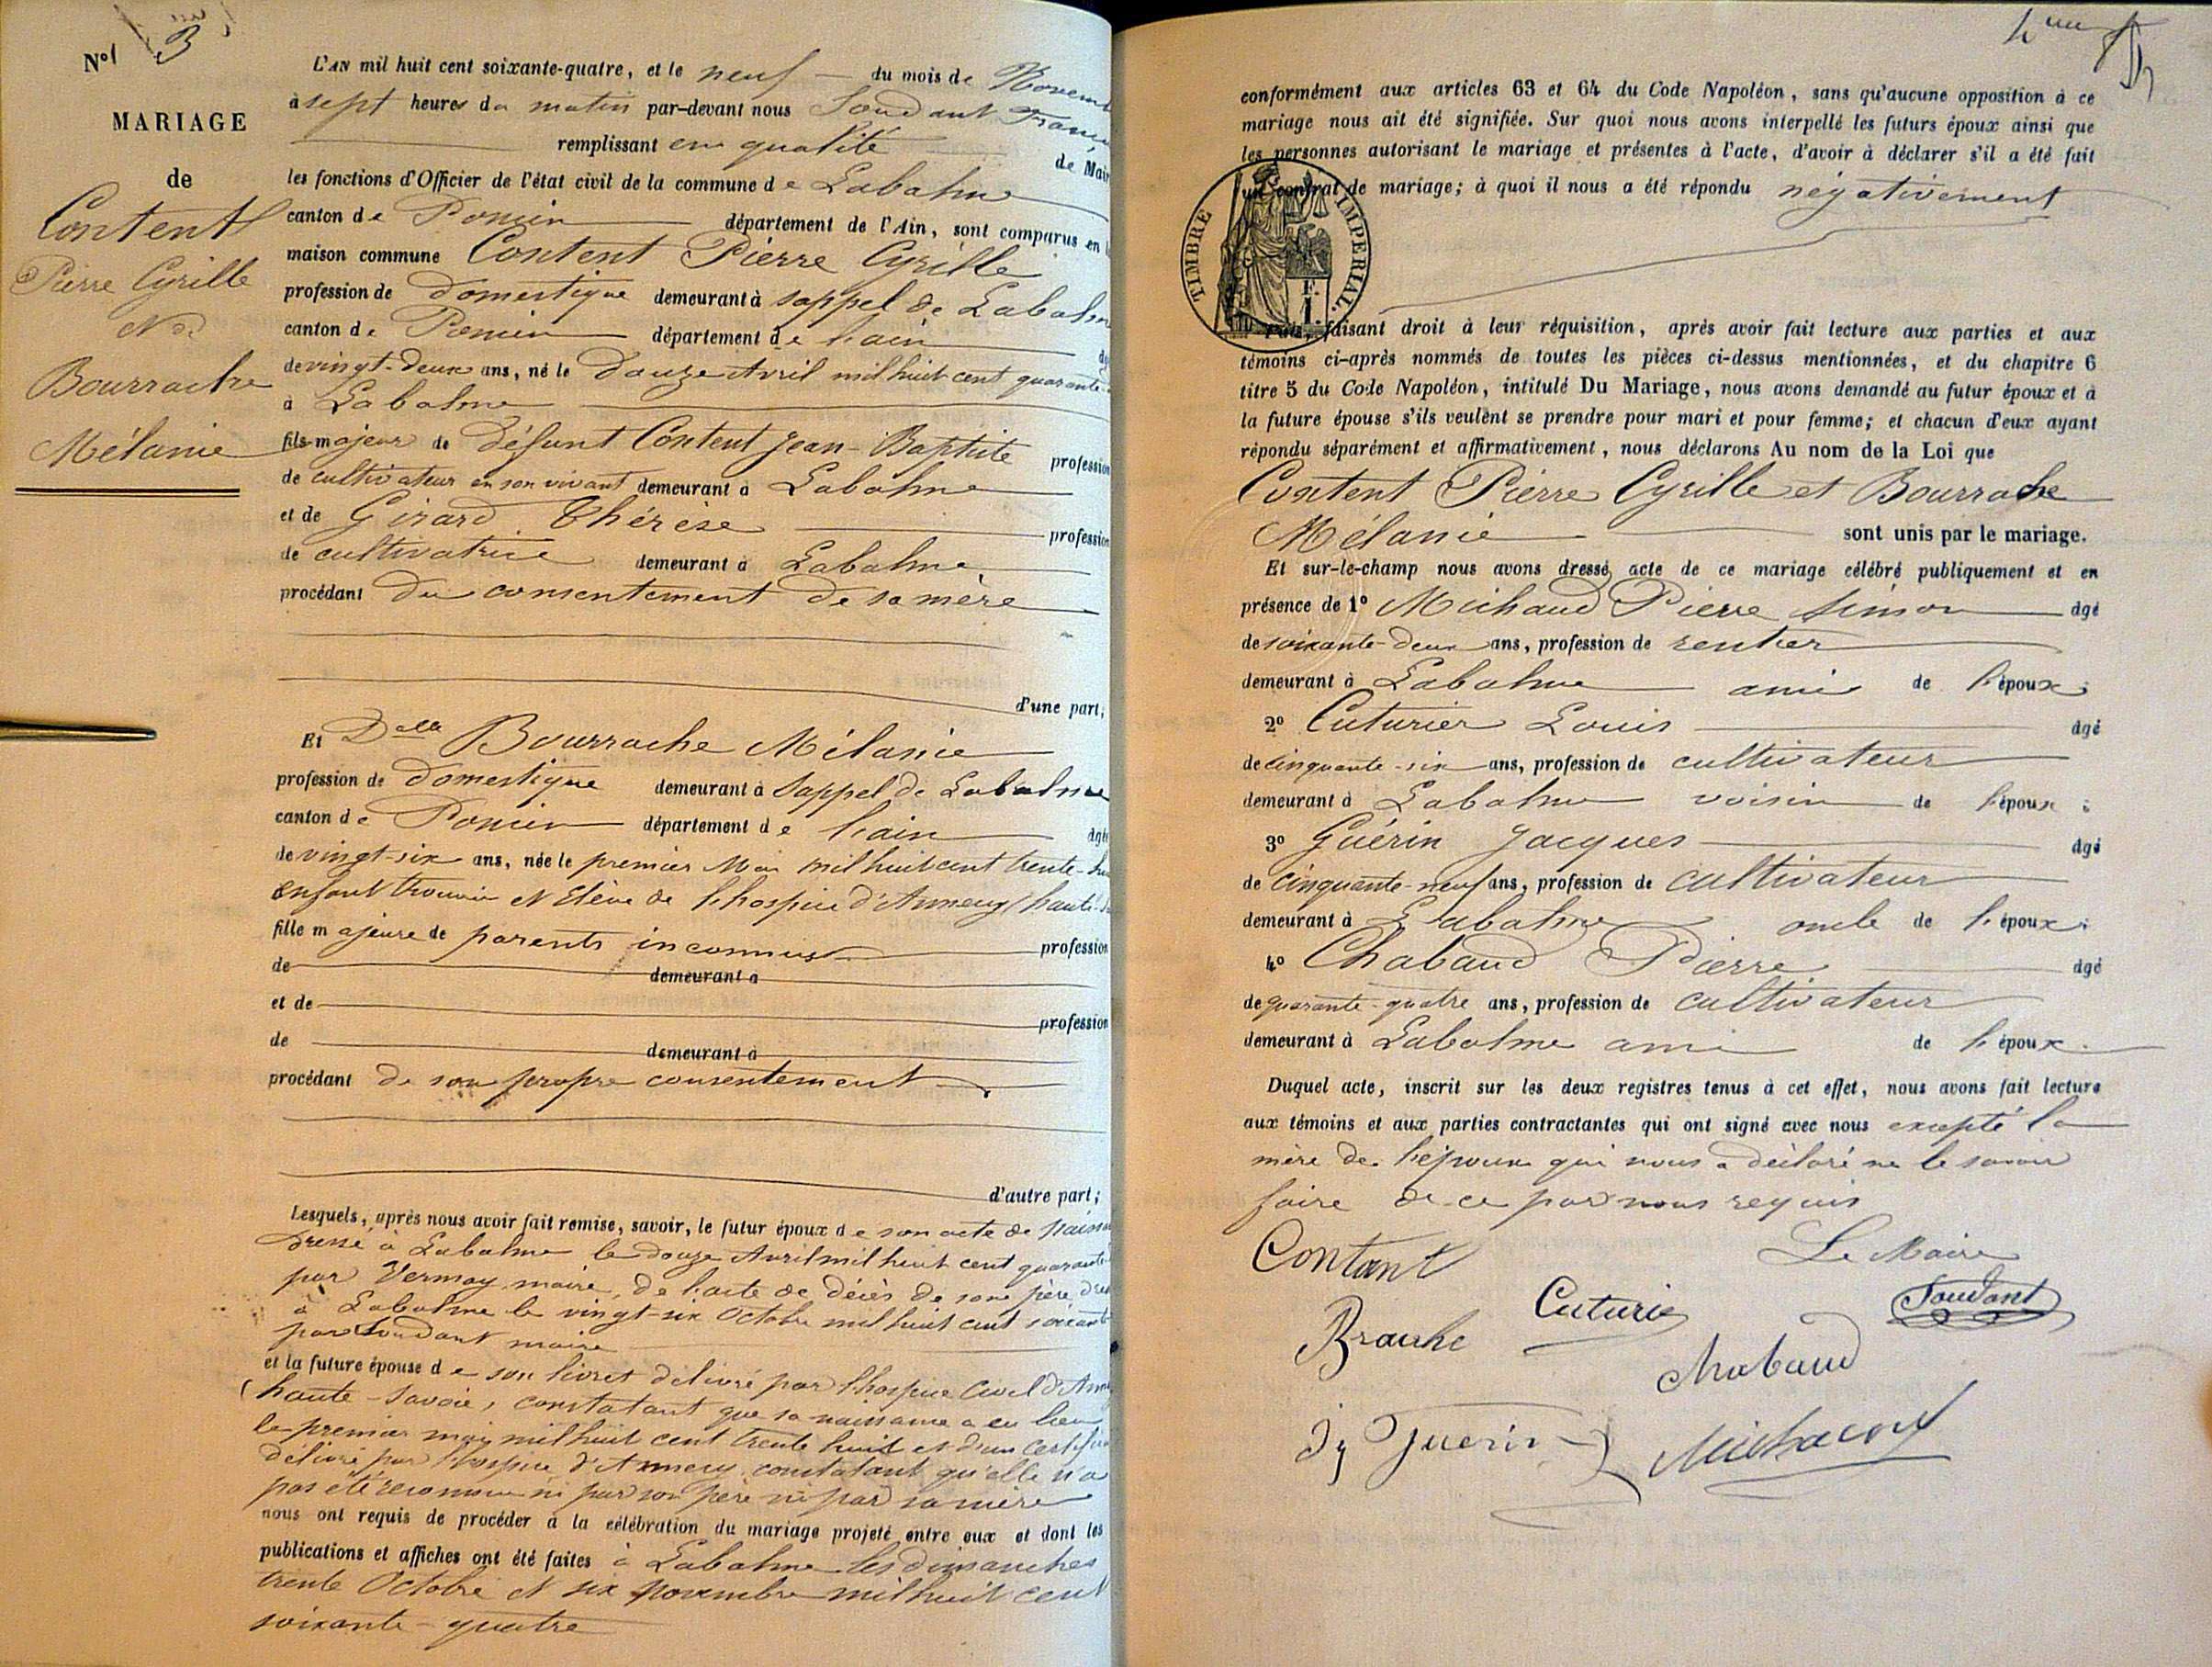 No 3
MARIAGE
de
Content
Pierre Cyrille
Et
Bourrache
Mélanie
L'AN mil huit cent soixante-quatre, et le neuf du mois de Novem
à sept heures du matin par-devant nous Soudant Franç
remplissant en qualité de Mair
les fonctions d'Officier de l'état civil de la commune de Labalme
canton de Poncin département de l'Ain, sont comparus en l
maison commune Content Pierre Cyrille
profession de domestique demeurant à Sappel de Labalm
canton de Poncin département de l'ain âg
de vingt-deux ans, né le Douze Avril mil huit cent quarante
à Labalme
fils majeur de défunt Content Jean-Baptiste profession
de cultivateur en son vivant demeurant à Labalme
et de Girard Thérèse profession
de cultivatrice demeurant à Labalme
procédant du consentement de sa mère
d'une part;
Et Delle Bourrache Mélanie
profession de domestique demeurant à Sappel de Labalme
canton de Poncin département de l'ain âgée
de vingt-six ans, née le premier Mai mil huit cent trente-hu
enfant trouvée et élève de l'hospice d'Annecy (haute-S
fille majeure de parents inconnus profession
de demeurant à
et de profession
de demeurant à
procédant de son propre consentement
d'autre part;
Lesquels, après nous avoir fait remise, savoir, le futur époux de son acte de naissa
dressé à Labalme le douze Avril mil huit cent quarante
par Vermay maire, de l'acte de décès de son père dres
à Labalme le vingt-six Octobre mil huit cent soixante
par Soudant maire
et la future épouse de son livret délivré par l'hospice Civil d'Ann
(haute-Savoie, constatant que sa naissance a eu lieu
le premier mai mil huit cent trente huit et d'un certifi
délivré par l'hospice d'Annecy constatant qu'elle n'a
pas été reconnue ni par son père ni par sa mère
nous ont requis de procéder à la célébration du mariage projeté entre eux et dont les
publications et affiches ont été faites à Labalme les dimanches
trente Octobre et six Novembre mil huit cent
soixante-quatre
conformément aux articles 63 et 64 du Code Napoléon, sans qu'aucune opposition à ce
mariage nous ait été signifiée. Sur quoi nous avons interpellé les futurs époux ainsi que
les personnes autorisant le mariage et présentes à l'acte, d'avoir à déclarer s'il a été fait
un contrat de mariage; à quoi il nous a été répondu négativement
TIMBRE IMPERIAL.
Puis, faisant droit à leur réquisition, après avoir fait lecture aux parties et aux
témoins ci-après nommés de toutes les pièces ci-dessus mentionnées, et du chapitre 6
titre 5 du Code Napoléon, intitulé Du Mariage, nous avons demandé au futur époux et à
la future épouse s'ils veulent se prendre pour mari et pour femme; et chacun d'eux ayant
répondu séparément et affirmativement, nous déclarons Au nom de la Loi que
Content Pierre Cyrille et Bourrache
Mélanie sont unis par le mariage.
Et sur-le-champ nous avons dressé acte de ce mariage célébré publiquement et en
présence de 1° Michaud Pierre Simon âgé
de soixante-deux ans, profession de rentier
demeurant à Labalme ami de l'époux;
2° Cuturier Louis âgé
de cinquante-six ans, profession de cultivateur
demeurant à Labalme voisin de l'époux;
3° Guérin Jacques âgé
de cinquante-neuf ans, profession de cultivateur
demeurant à Labalme oncle de l'époux;
4° Chabaud Pierre âgé
de quarante-quatre ans, profession de cultivateur
demeurant à Labalme ami de l'époux.
Duquel acte, inscrit sur les deux registres tenus à cet effet, nous avons fait lecture
aux témoins et aux parties contractantes qui ont signé avec nous excepté la
mère de l'époux qui nous a déclaré ne le savoir
faire de ce par nous requis
Contant Le Maire
Cuturie Soudant
Brauhe Chabaud
Guerin Michaud